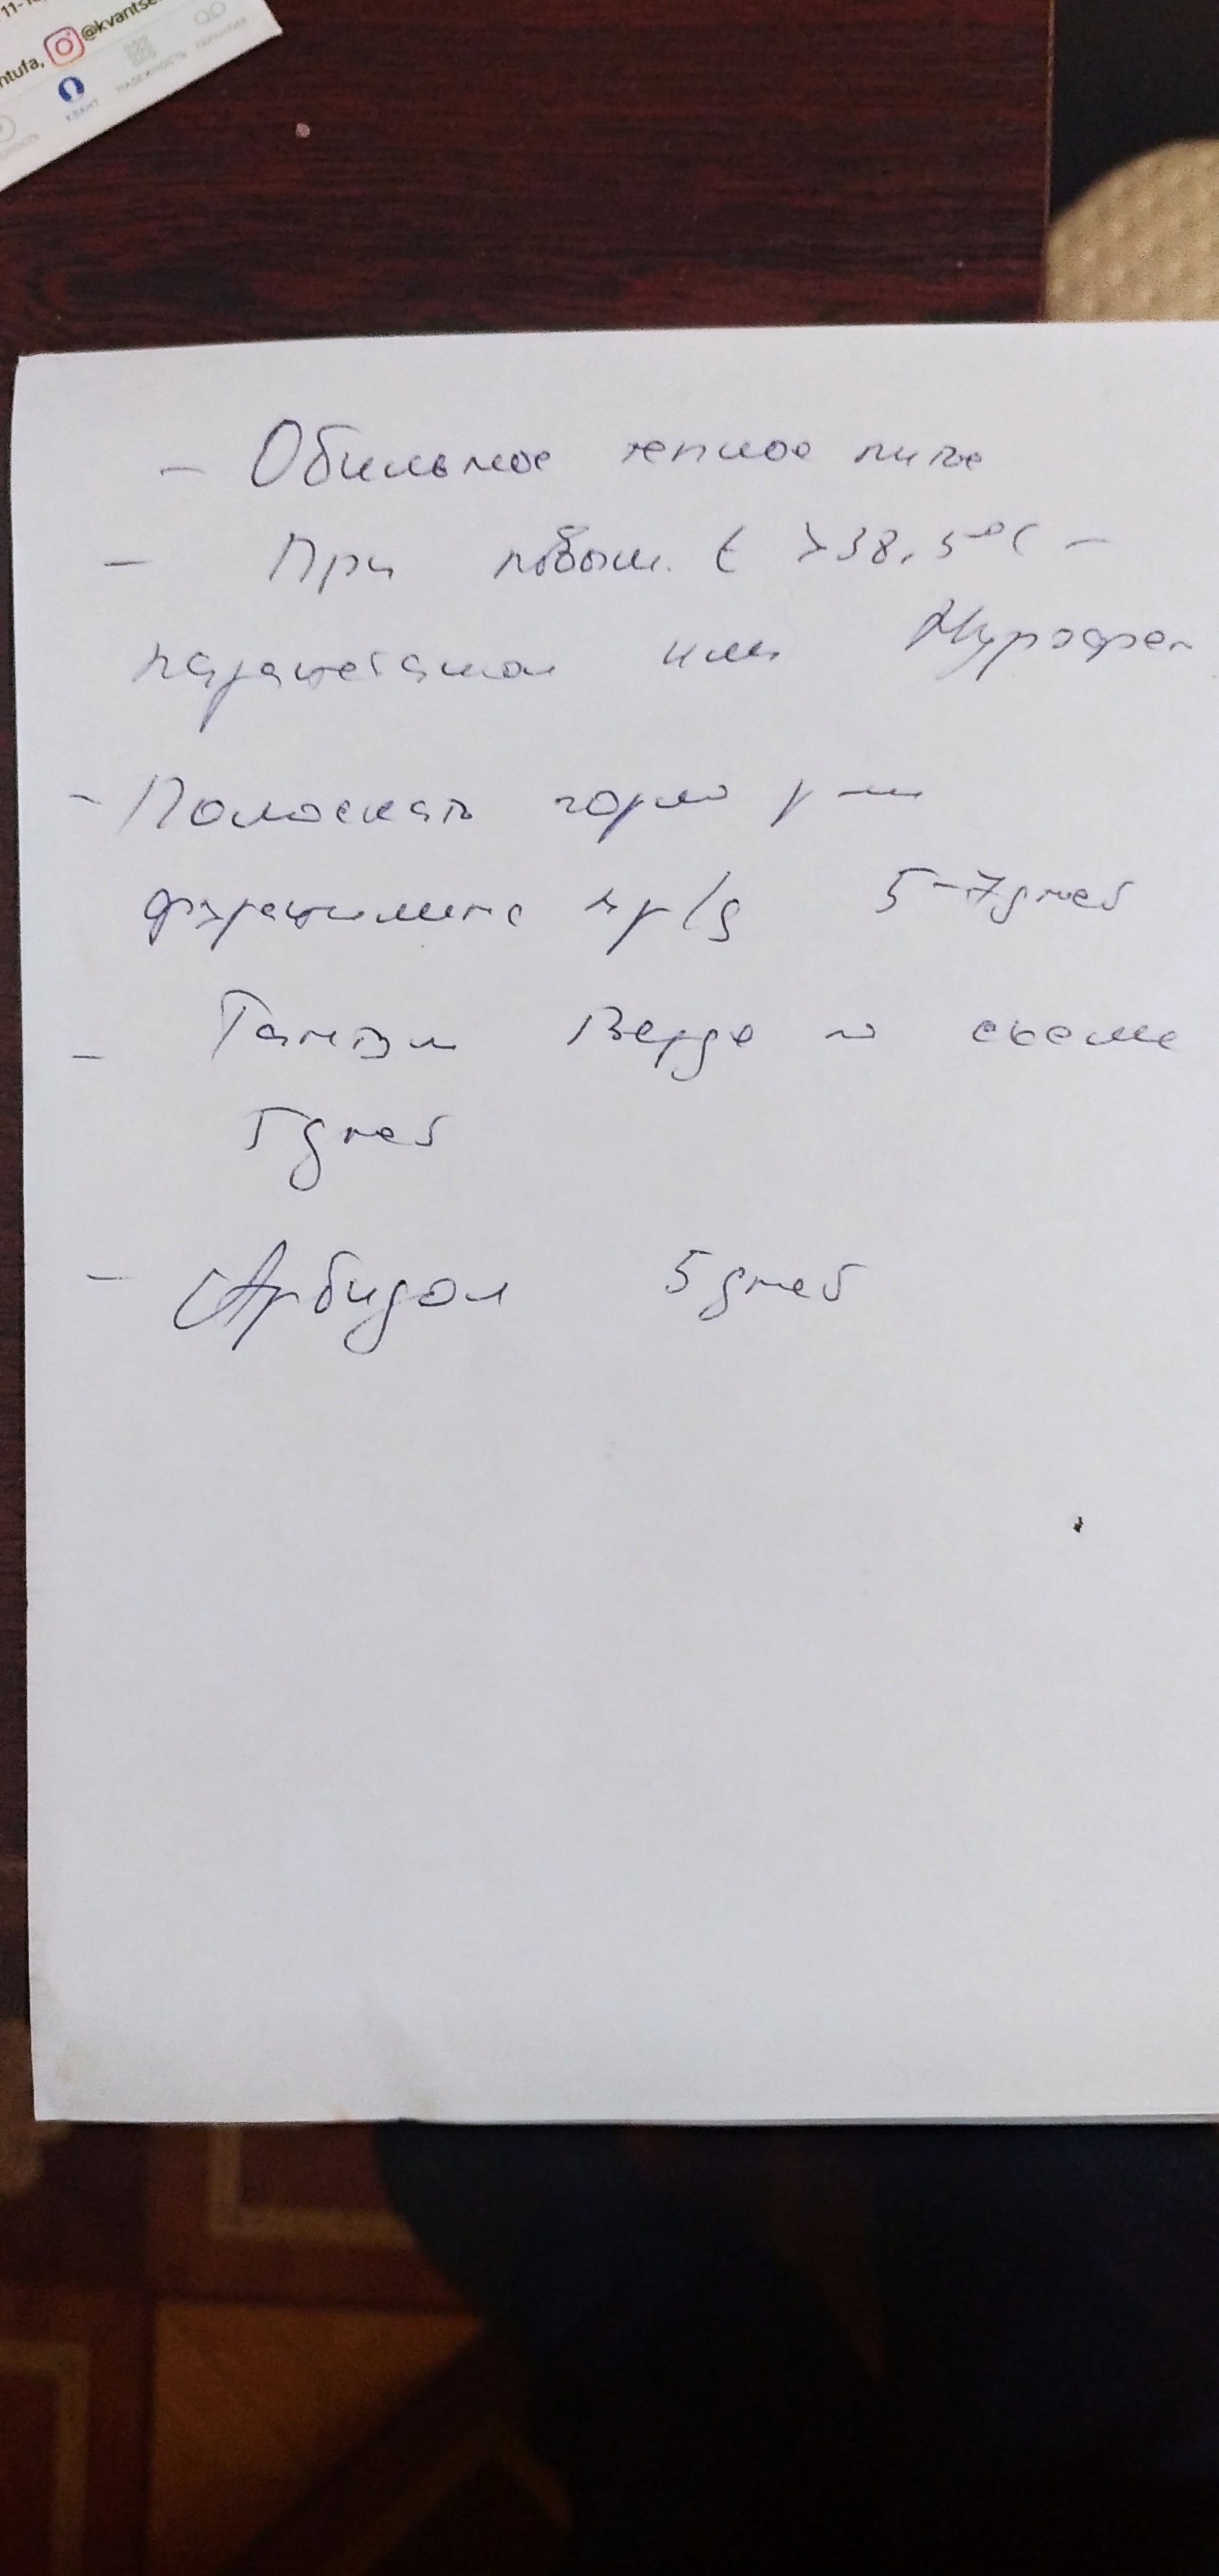 11-1
ntufa, @kvantse
КВАНТ
НАДЕЖНОСТЬ
- Обильное теплое питье
- При повыш. t >38,5°C -
парацетамол или Нурофен
- Полоскать горло р-ом
фурацилина 4 р/д 5-7 дней
- Тантум Верде по схеме
5 дней
- Арбидол 5 дней